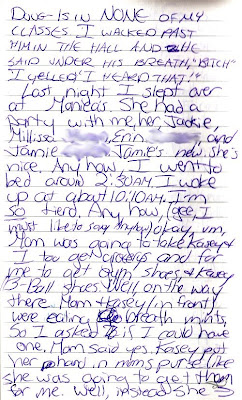 Doug is in NONE OF MY
CLASSES. I WALKED PAST
HIM IN THE HALL AND HE
SAID UNDER HIS BREATH, "BITCH"
I yelled "I HEARD THAT!"
Last night I slept over
at Monica's. She had a
party with me, her, Jackie,
Millissa, Erin, and
Jamie. Jamie's new. She's
nice. Any how I went to
bed aroun 2:30AM. I woke
up at about 10:10AM. I'm
so tierd. Any how, (gee, I
must like to say Anyhow) okay, um,
Mom was going to take Kasey &
I too get goodys and for
me to get gym shoes & Kasey
B-Ball shoes. Well, on the way
there Mom & Kasey (in front)
were eating breath mints,
So I asked if I could have
one. Mom said yes. Kasey put
her hand in moms purse like
she was going to get them
for me. Well, instead she